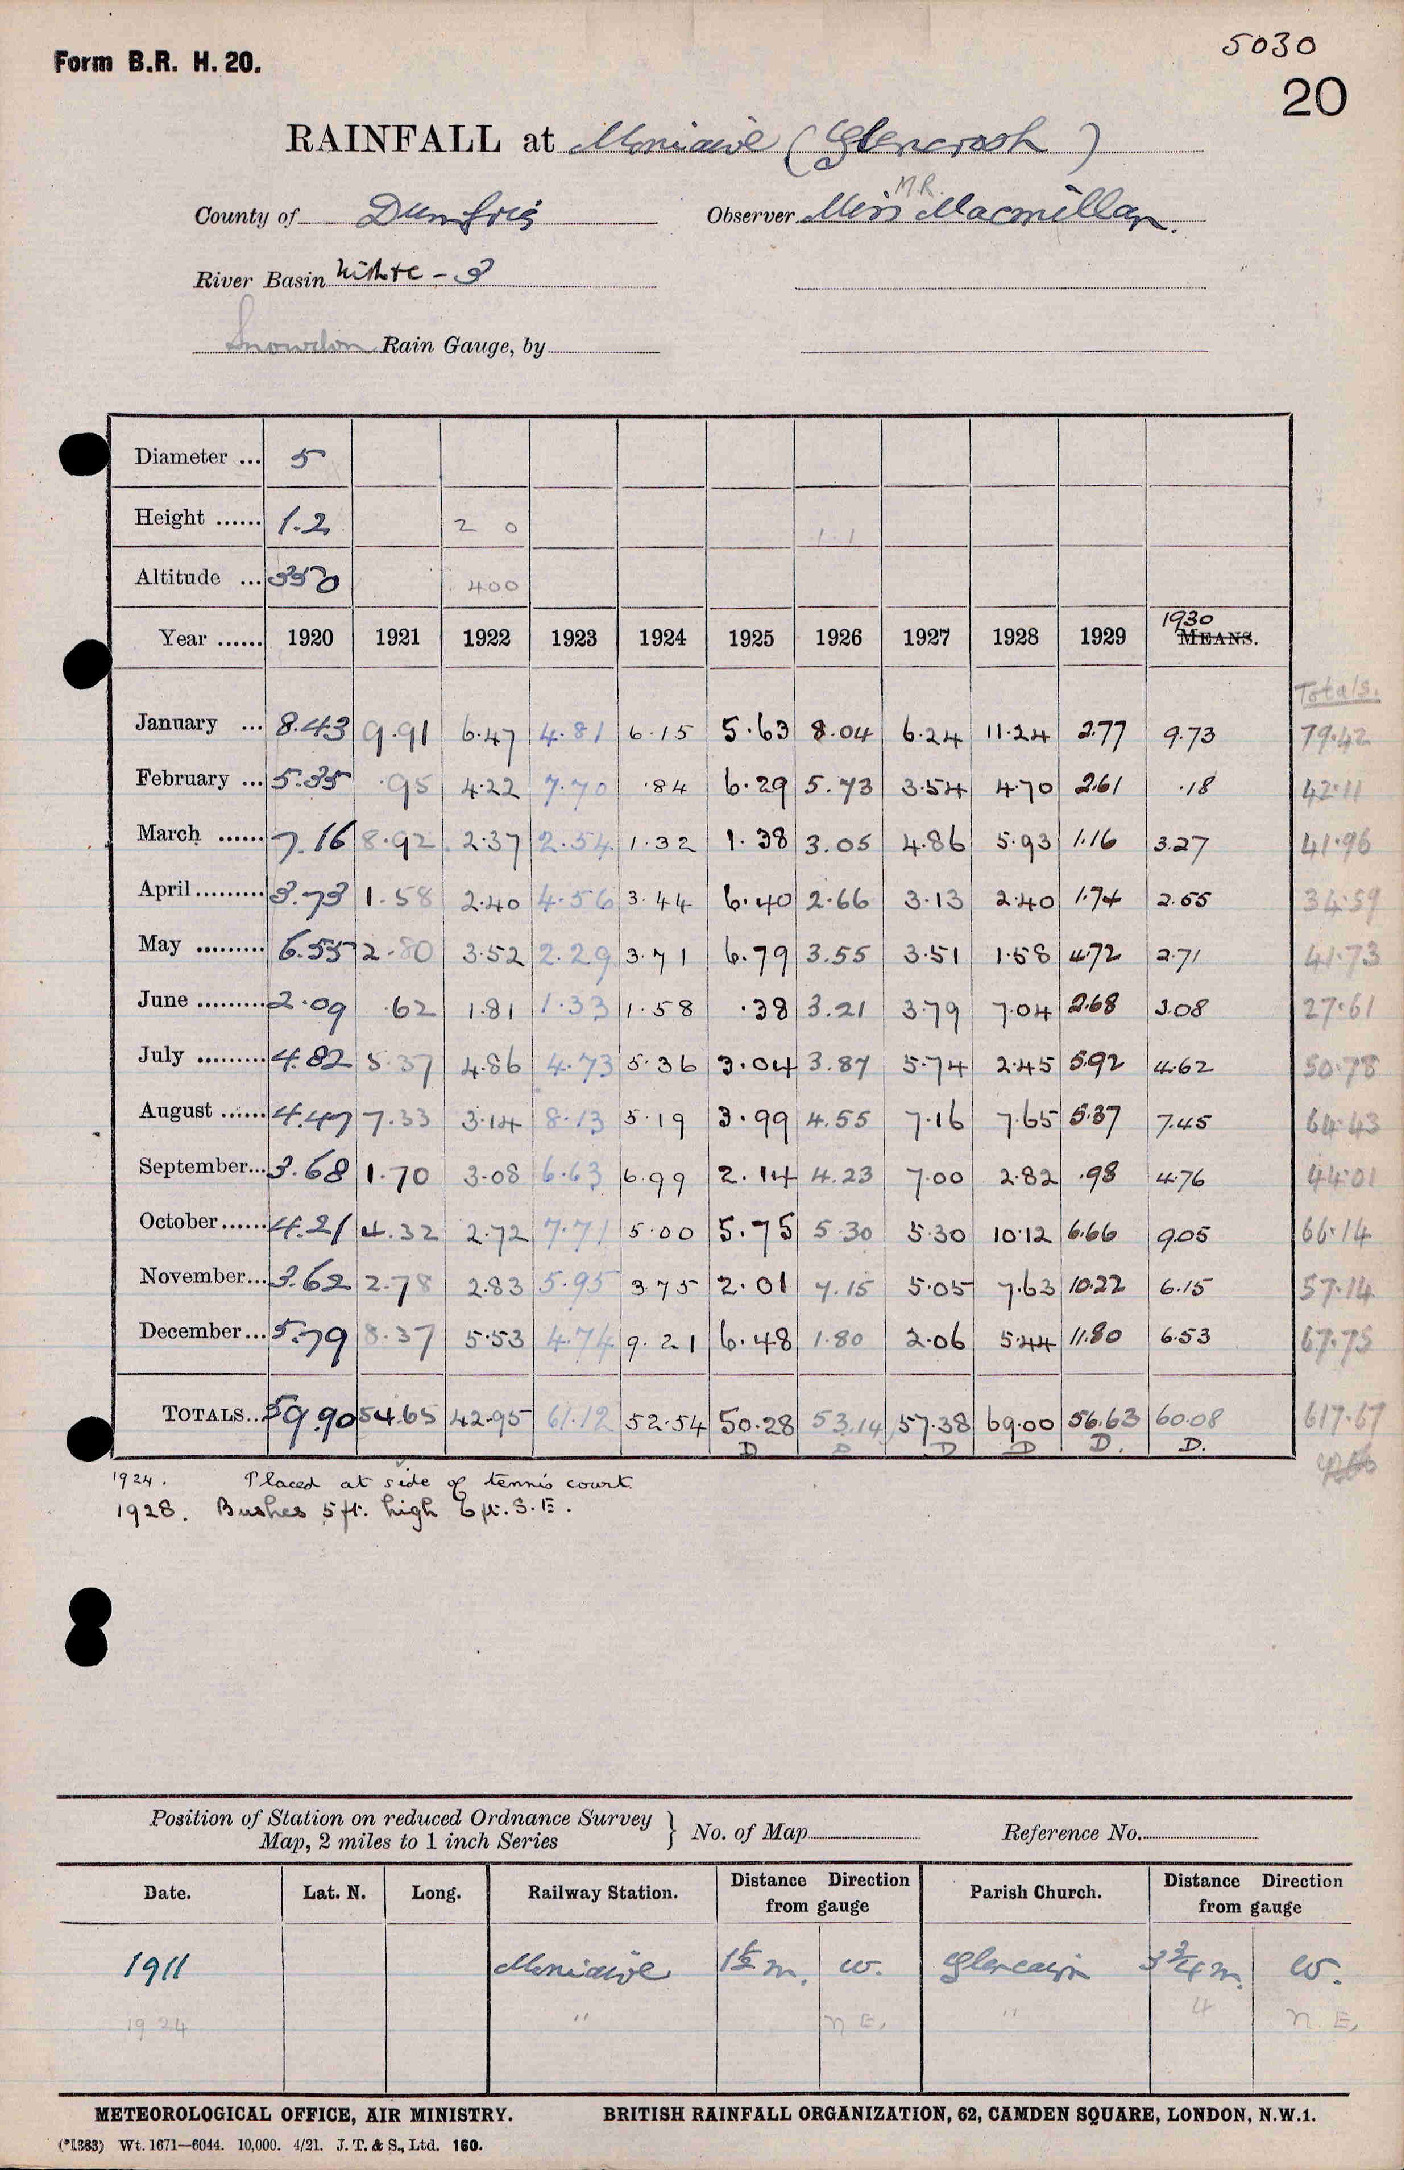 5030
Form B.R. H. 20.
20
RAINFALL at Moniaive (Glencrosh)
M.R.
County of Dumfries Observer Miss Macmillan.
River Basin Nith &c - 3
Snowdon Rain Gauge, by
Diameter ... 5
Height ...... 1.2 2 0 1.1
Altitude ... 350 400
1930
Year ...... 1920 1921 1922 1923 1924 1925 1926 1927 1928 1929 MEANS.
Totals.
January ... 8.43 9.91 6.47 4.81 6.15 5.63 8.04 6.24 11.24 2.77 9.73 79.42
February ... 5.35 .95 4.22 7.70 .84 6.29 5.73 3.54 4.70 2.61 .18 42.11
March ...... 7.16 8.92 2.37 2.54 1.32 1.38 3.05 4.86 5.93 1.16 3.27 41.96
April ......... 3.73 1.58 2.40 4.56 3.44 6.40 2.66 3.13 2.40 1.74 2.55 34.59
May ......... 6.55 2.80 3.52 2.29 3.71 6.79 3.55 3.51 1.58 4.72 2.71 41.73
June ......... 2.09 .62 1.81 1.33 1.58 .38 3.21 3.79 7.04 2.68 3.08 27.61
July ......... 4.82 5.37 4.86 4.73 5.36 3.04 3.87 5.74 2.45 5.92 4.62 50.78
August ...... 4.47 7.33 3.14 8.13 5.19 3.99 4.55 7.16 7.65 5.37 7.45 64.43
September... 3.68 1.70 3.08 6.63 6.99 2.14 4.23 7.00 2.82 .98 4.76 44.01
October...... 4.21 4.32 2.72 7.71 5.00 5.75 5.30 5.30 10.12 6.66 9.05 66.14
November... 3.62 2.78 2.83 5.95 3.75 2.01 7.15 5.05 7.63 10.22 6.15 57.14
December... 5.79 8.37 5.53 4.74 9.21 6.48 1.80 2.06 5.44 11.80 6.53 67.75
TOTALS.. 59.90 54.65 42.95 61.12 52.54 50.28 53.14 57.38 69.00 56.63 60.08 617.67
D D D D D. D.
1924. Placed at side of tennis court.
1928. Bushes 5 ft. high 6 ft. S.E.
Position of Station on reduced Ordnance Survey
Map, 2 miles to 1 inch Series } No. of Map Reference No.
Date. Lat. N. Long. Railway Station. Distance Direction from gauge Parish Church. Distance Direction from gauge
1911 Moniaive 1½ m. W. Glencairn 3¾ m. W.
1924 " N.E. " 4 N.E.
METEOROLOGICAL OFFICE, AIR MINISTRY. BRITISH RAINFALL ORGANIZATION, 62, CAMDEN SQUARE, LONDON, N.W.1.
(*1383) Wt. 1671—6044. 10,000. 4/21. J. T. & S., Ltd. 160.